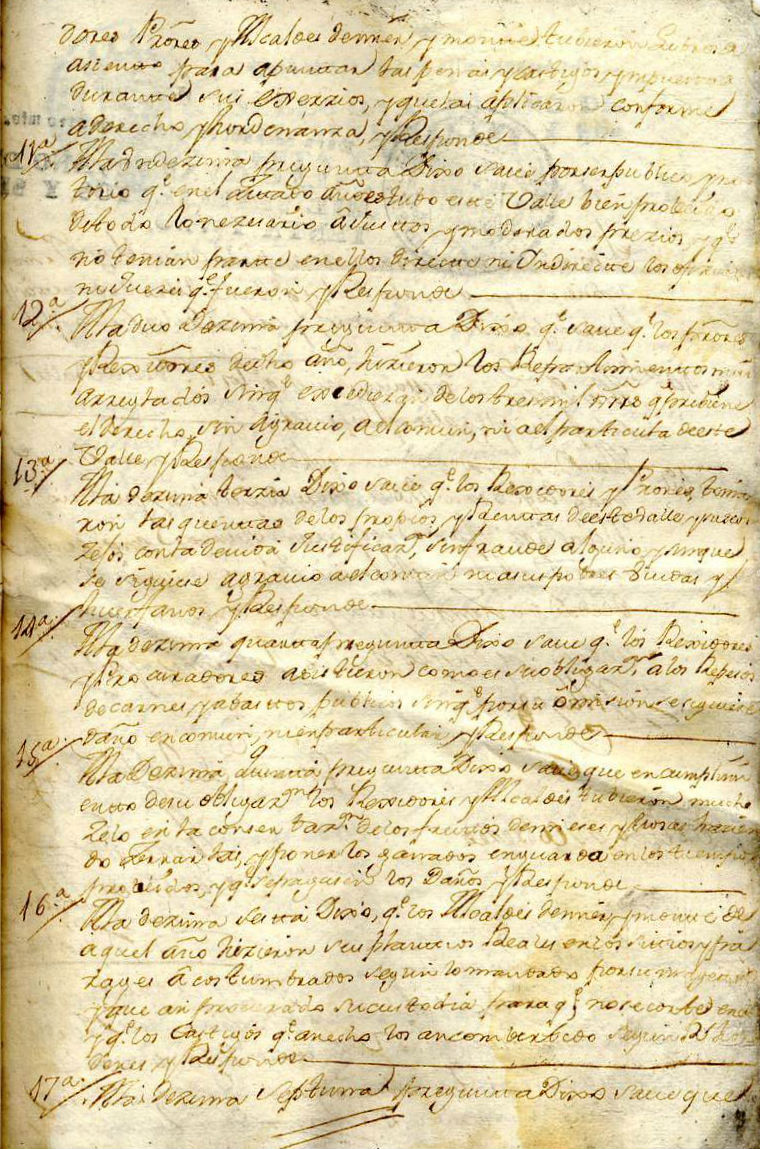 dores Prores y Alcaldes de mes y monte tubieron Libro o
asiento para apuntar las penas y Castigos ympuestos
durante sus exerzios, y que las aplicaron conforme
a derecho y hordenanza, y Responde
11ª A la undezima pregunta Dixo save por ser publico y no
torio q.e en el zitado año estubo este Valle bien probeido
de todo lo nezesario a Justos y moderados prezios, y q.e
no tenian parte en ellos directe ni Yndirecte los ofiziales
q.e fueron y Responde
12.ª A la duo dezima pregunta Dixo q.e save q.e los Prores
y Rexidores de dicho año, hizieron los Repartimientos muy
arreglados sin q.e excediesen de los tres mil mrs q.e previene
el derecho, sin Agravio, al comun, ni a el particular de este
Valle y Responde
13.ª A la dezima terzia Dixo save q.e los Rexidores y Prores, toma
ron las quentas de los propios, y Rentas de este Valle y sus con
zejos con la devida Justificaz.n sin fraude alguno, y sin que
se siguiese agravio a el comun ni a sus pobres Viudas y
huerfanos y Responde
14.ª A la dezima quarta pregunta Dixo save q.e los Rexidores
y Procuradores asistieron como es su obligaz.n a los Repesos
de carnes y abastos publicos sin q.e por su omision se siguiese
daño en comun, ni en particular y Responde
15.ª A la Dezima quinta pregunta Dixo save que en cumplimi
ento de su obligaz.n los Rexidores y Alcaldes tubieron mucho
Zelo en la conservaz.n de los frutos de mieses y hazien
do zerrarlas, y poner los ganados en guarda en los tiempos
y q.e se pagasen los Daños y Responde
16.ª A la dezima sesta Dixo, q.e los Alcaldes de mes y monte de
aquel año hizieron sus plantios Reales en los sitios y pa
rages acostumbrados segun lo mandado por su magestad
y que an procurado su custodia para q.e no se corte
y q.e los Castigos q.e an echo, los an segun
y Responde
17ª A la dezima septima pregunta Dixo save que